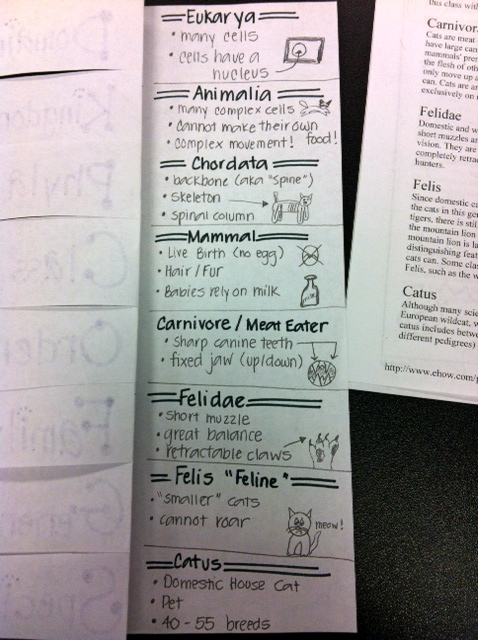 Eukarya
• many cells
• cells have a
nucleus
Animalia
• many complex cells
• cannot make their own
food!
• complex movement!
Chordata
• backbone (aka "spine")
• skeleton
• spinal column
Mammal
• Live Birth (no egg)
• Hair/Fur
• Babies rely on milk
Carnivore / Meat Eater
• sharp canine teeth
• fixed jaw (up/down)
Felidae
• short muzzle
• great balance
• retractable claws
Felis "Feline"
• "smaller" cats
• cannot roar
meow!
Catus
• Domestic House Cat
• Pet
• 40-55 breeds
Domain
Kingdom
Phyla
Class
Order
Family
this class wit
Carnivor
Cats are meat
have large can
mammals' pre
the flesh of oth
only move up a
can. Cats are ar
exclusively on
Felidae
Domestic and w
short muzzles an
vision. They are
completely retra
hunters.
Felis
Since domestic ca
the cats in this gen
tigers, there is still
the mountain lion
mountain lion is la
distinguishing feat
cats can. Some clas
Felis, such as the w
Catus
Although many scie
European wildcat, w
catus includes betw
different pedigrees)
http://www.ehow.com/